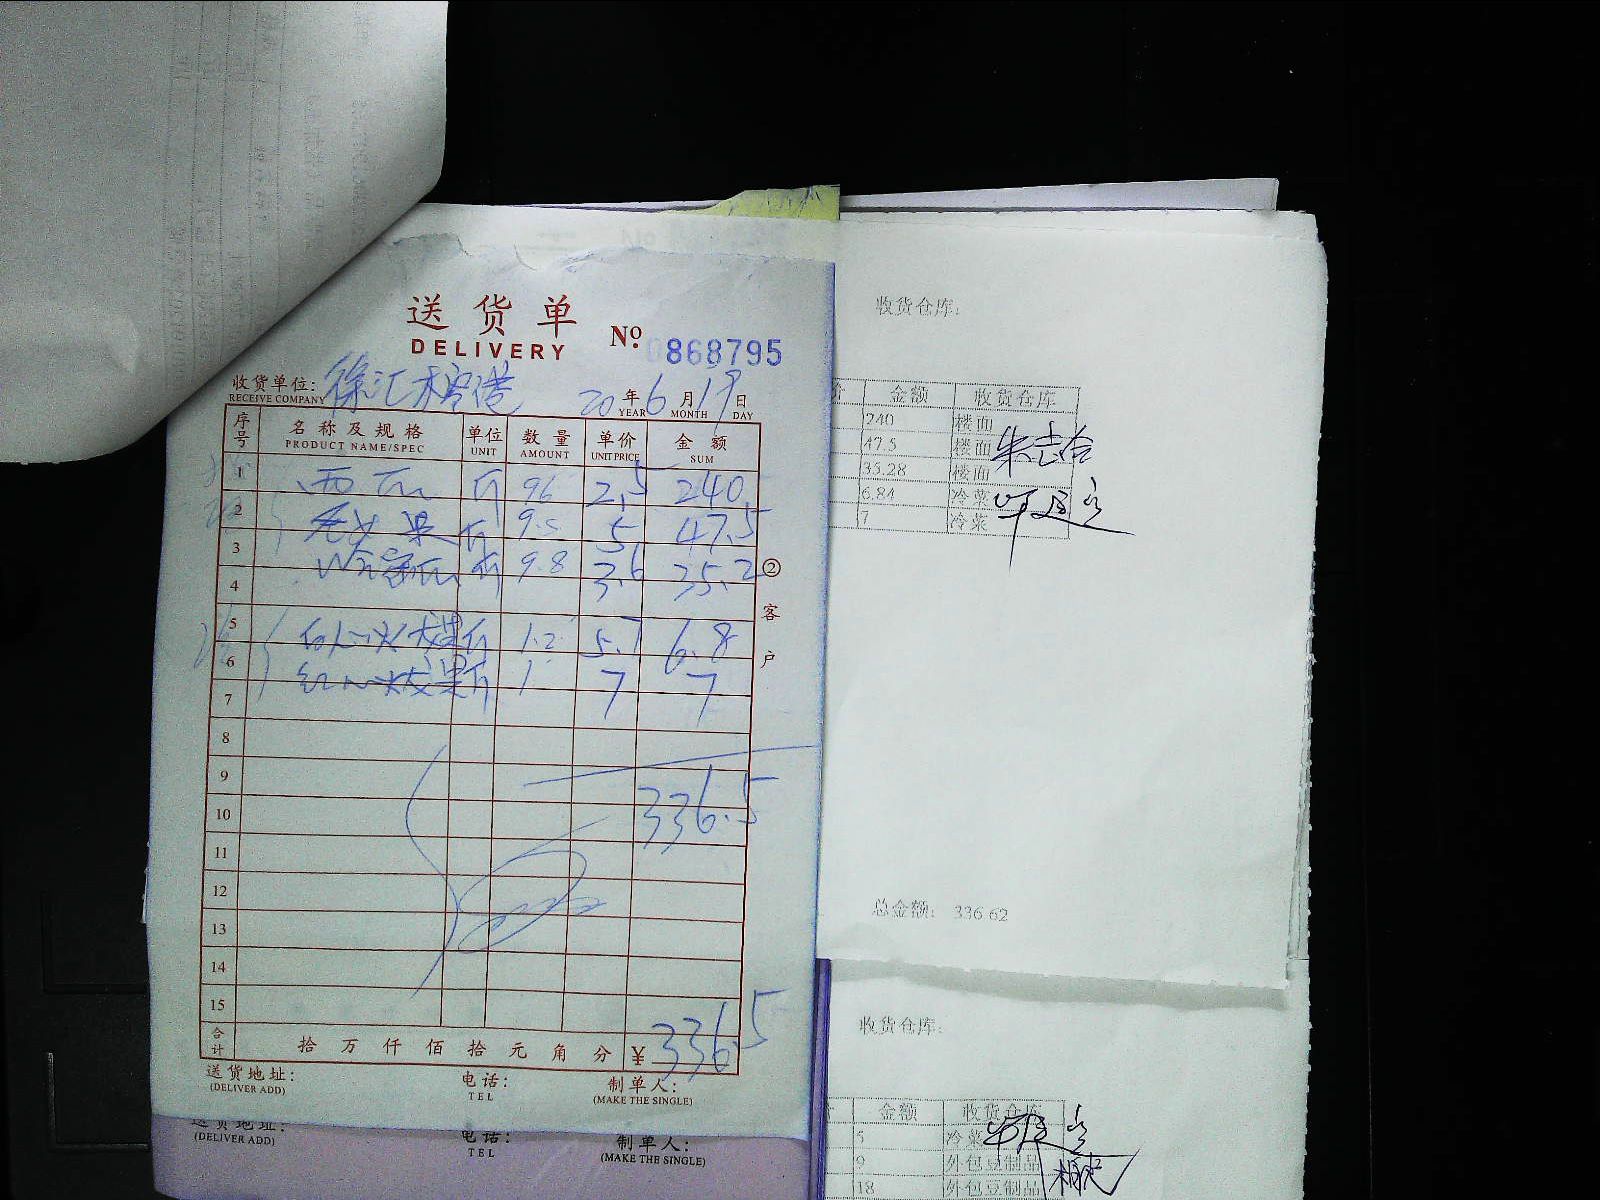 送货单
DELIVERY
No 0868795
收货单位:
RECEIVE COMPANY
徐汇
20 年 6 月 19 日
YEAR MONTH DAY
序号 名称及规格 单位 数量 单价 金额
PRODUCT NAME/SPEC UNIT AMOUNT UNIT PRICE SUM
1 西瓜 斤 96 2.5 240.
2 斤 9.5 5 47.5
3 哈密瓜 斤 9.8 3.6 35.2
4
5 白心火龙果 斤 1.2 5.7 6.8
6 红心火龙果 斤 1 7 7
7
8
9
10 336.5
11
12
13
14
15
合计 拾 万 仟 佰 拾 元 角 分 ¥ 336.5
送货地址: 电话: 制单人:
(DELIVER ADD) TEL (MAKE THE SINGLE)
②客户
送货地址: 电话: 制单人:
(DELIVER ADD) TEL (MAKE THE SINGLE)
收货仓库:
价 金额 收货仓库
240 楼面
47.5 楼面
35.28 楼面
6.84 冷菜
7 冷菜
总金额: 336.62
收货仓库:
金额 收货仓库
5 冷菜
9 外包豆制品
18 外包豆制品